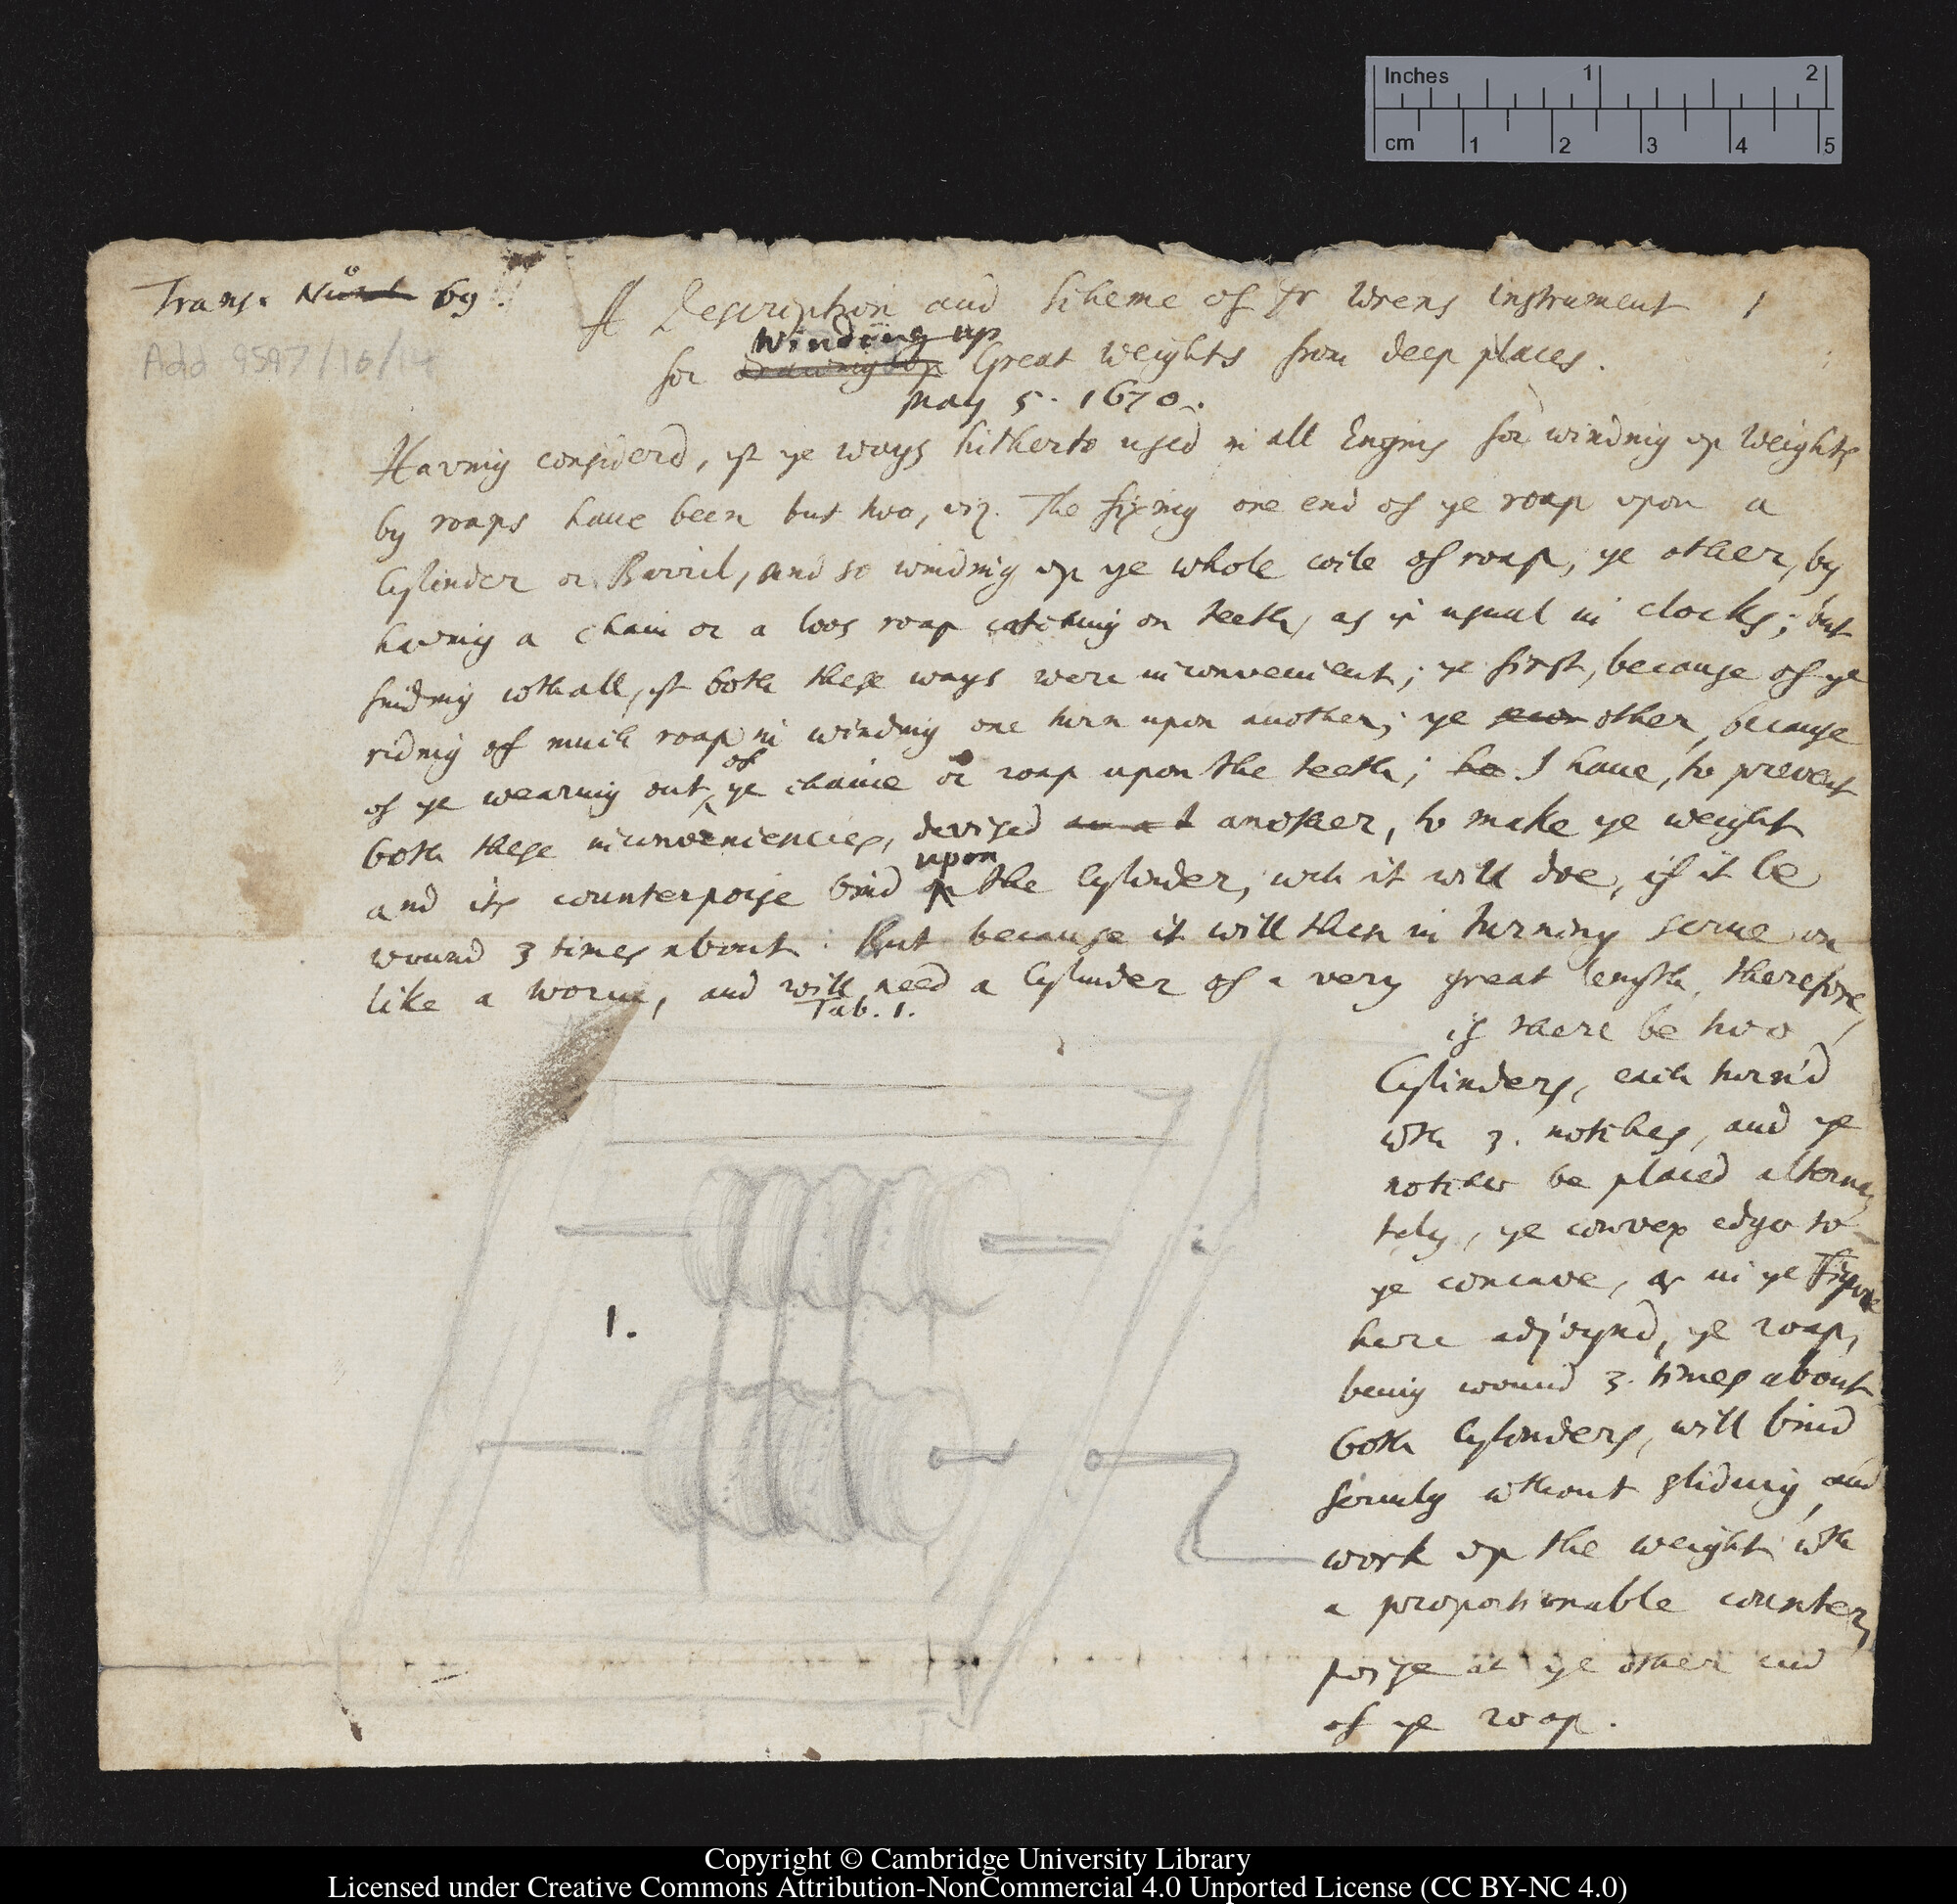 Inches 1 2
cm 1 2 3 4 5
Trans. No 69.
A Description and Scheme of Dr Wrens instrument 1
Winding up
for drawing up Great weights from deep places.
May 5. 1670.
Add 9597/16/14
Having considerd, yt ye ways hitherto used in all Engins for winding up Weights
by roaps have been but two, viz. The fixing one end of ye roap upon a
Cylinder or Barril, and so winding up ye whole coile of roap; ye other, by
having a chain or a loos roap catching on teeth, as is usual in clocks; but
finding withall, yt both these ways were inconvenient; ye first, because of ye
riding of much roap in winding one turn upon another; ye other, because
of ye wearing out of ye chaine or roap upon the teeth; I have, to prevent
both these inconveniencies, devised another, to make ye weight
and its counterpoise bind upon the Cylinder; wch it will doe, if it be
wound 3 times about: But because it will then in turning scrue on
like a worm, and will need a Cylinder of a very great length, therefore,
Tab. 1.
if there be two
Cylinders, each turn'd
wth 3. notches, and ye
notches be placed alterna-
tely, ye convex edge to
ye concave, as in ye Figure
here adjoynd, ye roap,
being wound 3. times about
both Cylinders, will bind
firmly wthout gliding, and
work up the weight wth
a proportionable counter-
poise at ye other end
of ye roap.
1.
Copyright © Cambridge University Library
Licensed under Creative Commons Attribution-NonCommercial 4.0 Unported License (CC BY-NC 4.0)